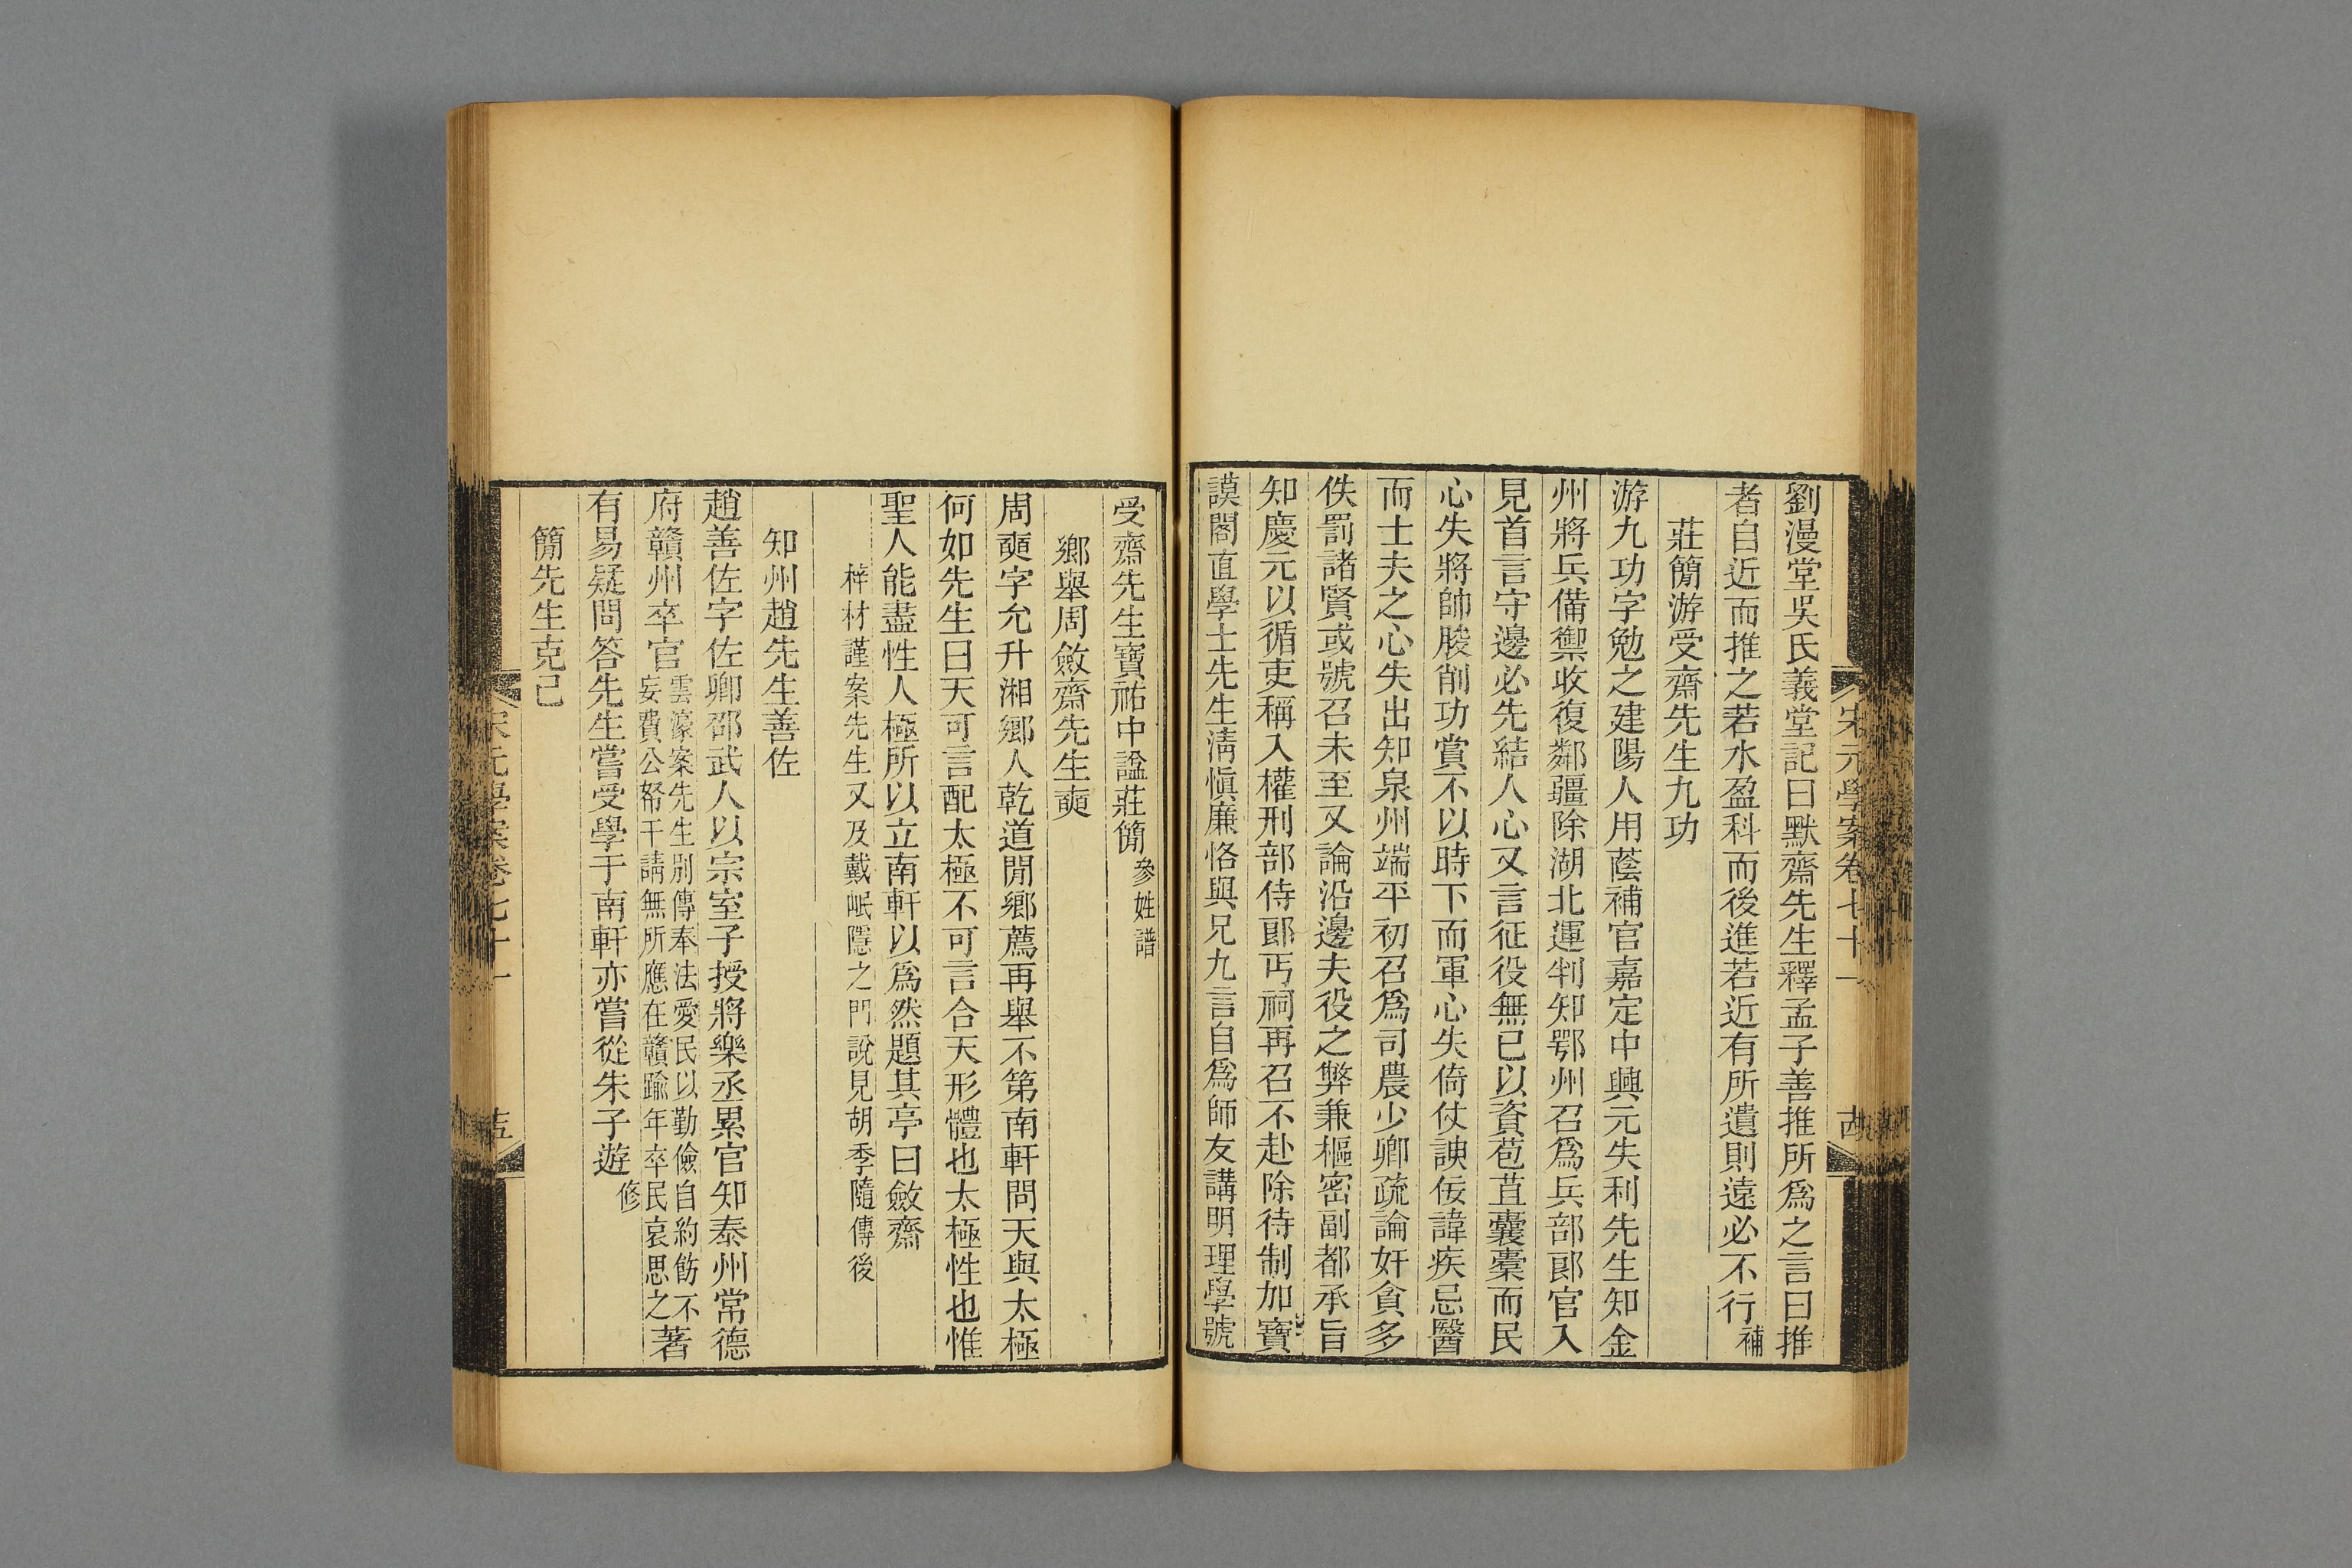 劉漫堂吳氏義堂記曰默齋先生釋孟子善推所爲之言曰推
者自近而推之若水盈科而後進若近有所遺則遠必不行補
莊簡游受齋先生九功
游九功字勉之建陽人用蔭補官嘉定中興元失利先生知金
州將兵備禦收復鄰疆除湖北運判知鄂州召爲兵部郎官入
見首言守邊必先結人心又言征役無已以資苞苴囊橐而民
心失將帥朘削功賞不以時下而軍心失倚仗諛佞諱疾忌醫
而士夫之心失出知泉州端平初召爲司農少卿疏論奸貪多
佚罰諸賢或號召未至又論沿邊夫役之弊兼樞密副都承旨
知慶元以循吏稱入權刑部侍郎丐祠再召不赴除待制加寶
謨閣直學士先生淸愼廉恪與兄九言自爲師友講明理學號
受齋先生寶祐中諡莊簡參姓譜
鄉舉周斂齋先生奭
周奭字允升湘鄉人乾道閒鄉薦再舉不第南軒問天與太極
何如先生曰天可言配太極不可言合天形體也太極性也惟
聖人能盡性人極所以立南軒以爲然題其亭曰斂齋
梓材謹案先生又及戴岷隱之門說見胡季隨傳後
知州趙先生善佐
趙善佐字佐卿邵武人以宗室子授將樂丞累官知泰州常德
府贛州卒官雲濠案先生別傳奉法愛民以勤儉自約飭不
妄費公帑干請無所應在贛踰年卒民哀思之著
有易疑問答先生嘗受學于南軒亦嘗從朱子遊修
簡先生克己
宋元學案卷七十一